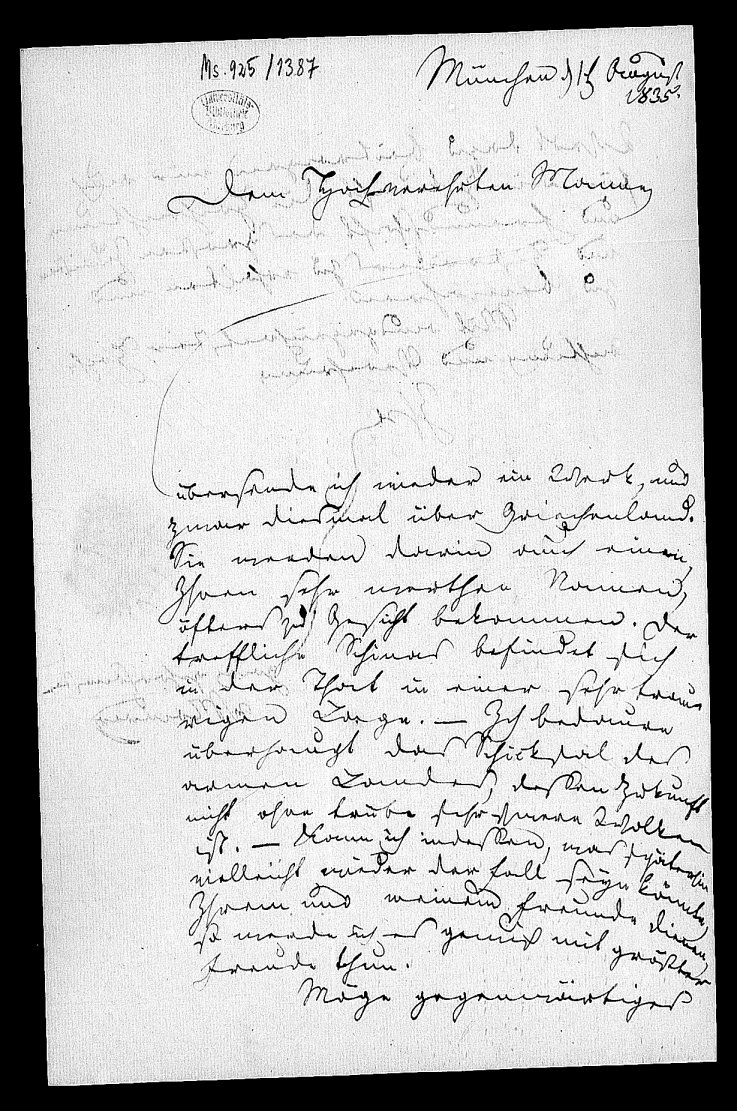 Ms. 925/1387
München d 15 August
1835.
Universitäts-
Bibliothek
Marburg
Dem Hochverehrten Manne
übersende ich wieder ein Werk, und
zwar diesmal über Griechenland.
Sie werden darin auch einen,
Ihnen sehr werthen Namen,
öfters zu Gesicht bekommen. Der
treffliche Schinas befindet sich
in der That in einer sehr trau-
rigen Lage. — Ich bedaure
überhaupt das Schicksal des
armen Landes, dessen Zukunft
nicht ohne trübe schwere Wolken
ist. — Kann ich indessen, was späterhin
vielleicht wieder der Fall seyn könnte,
Ihrem und meinem Freunde dienen,
so werde ich es gewiß mit größter
Freude thun.
Möge gegenwärtiges